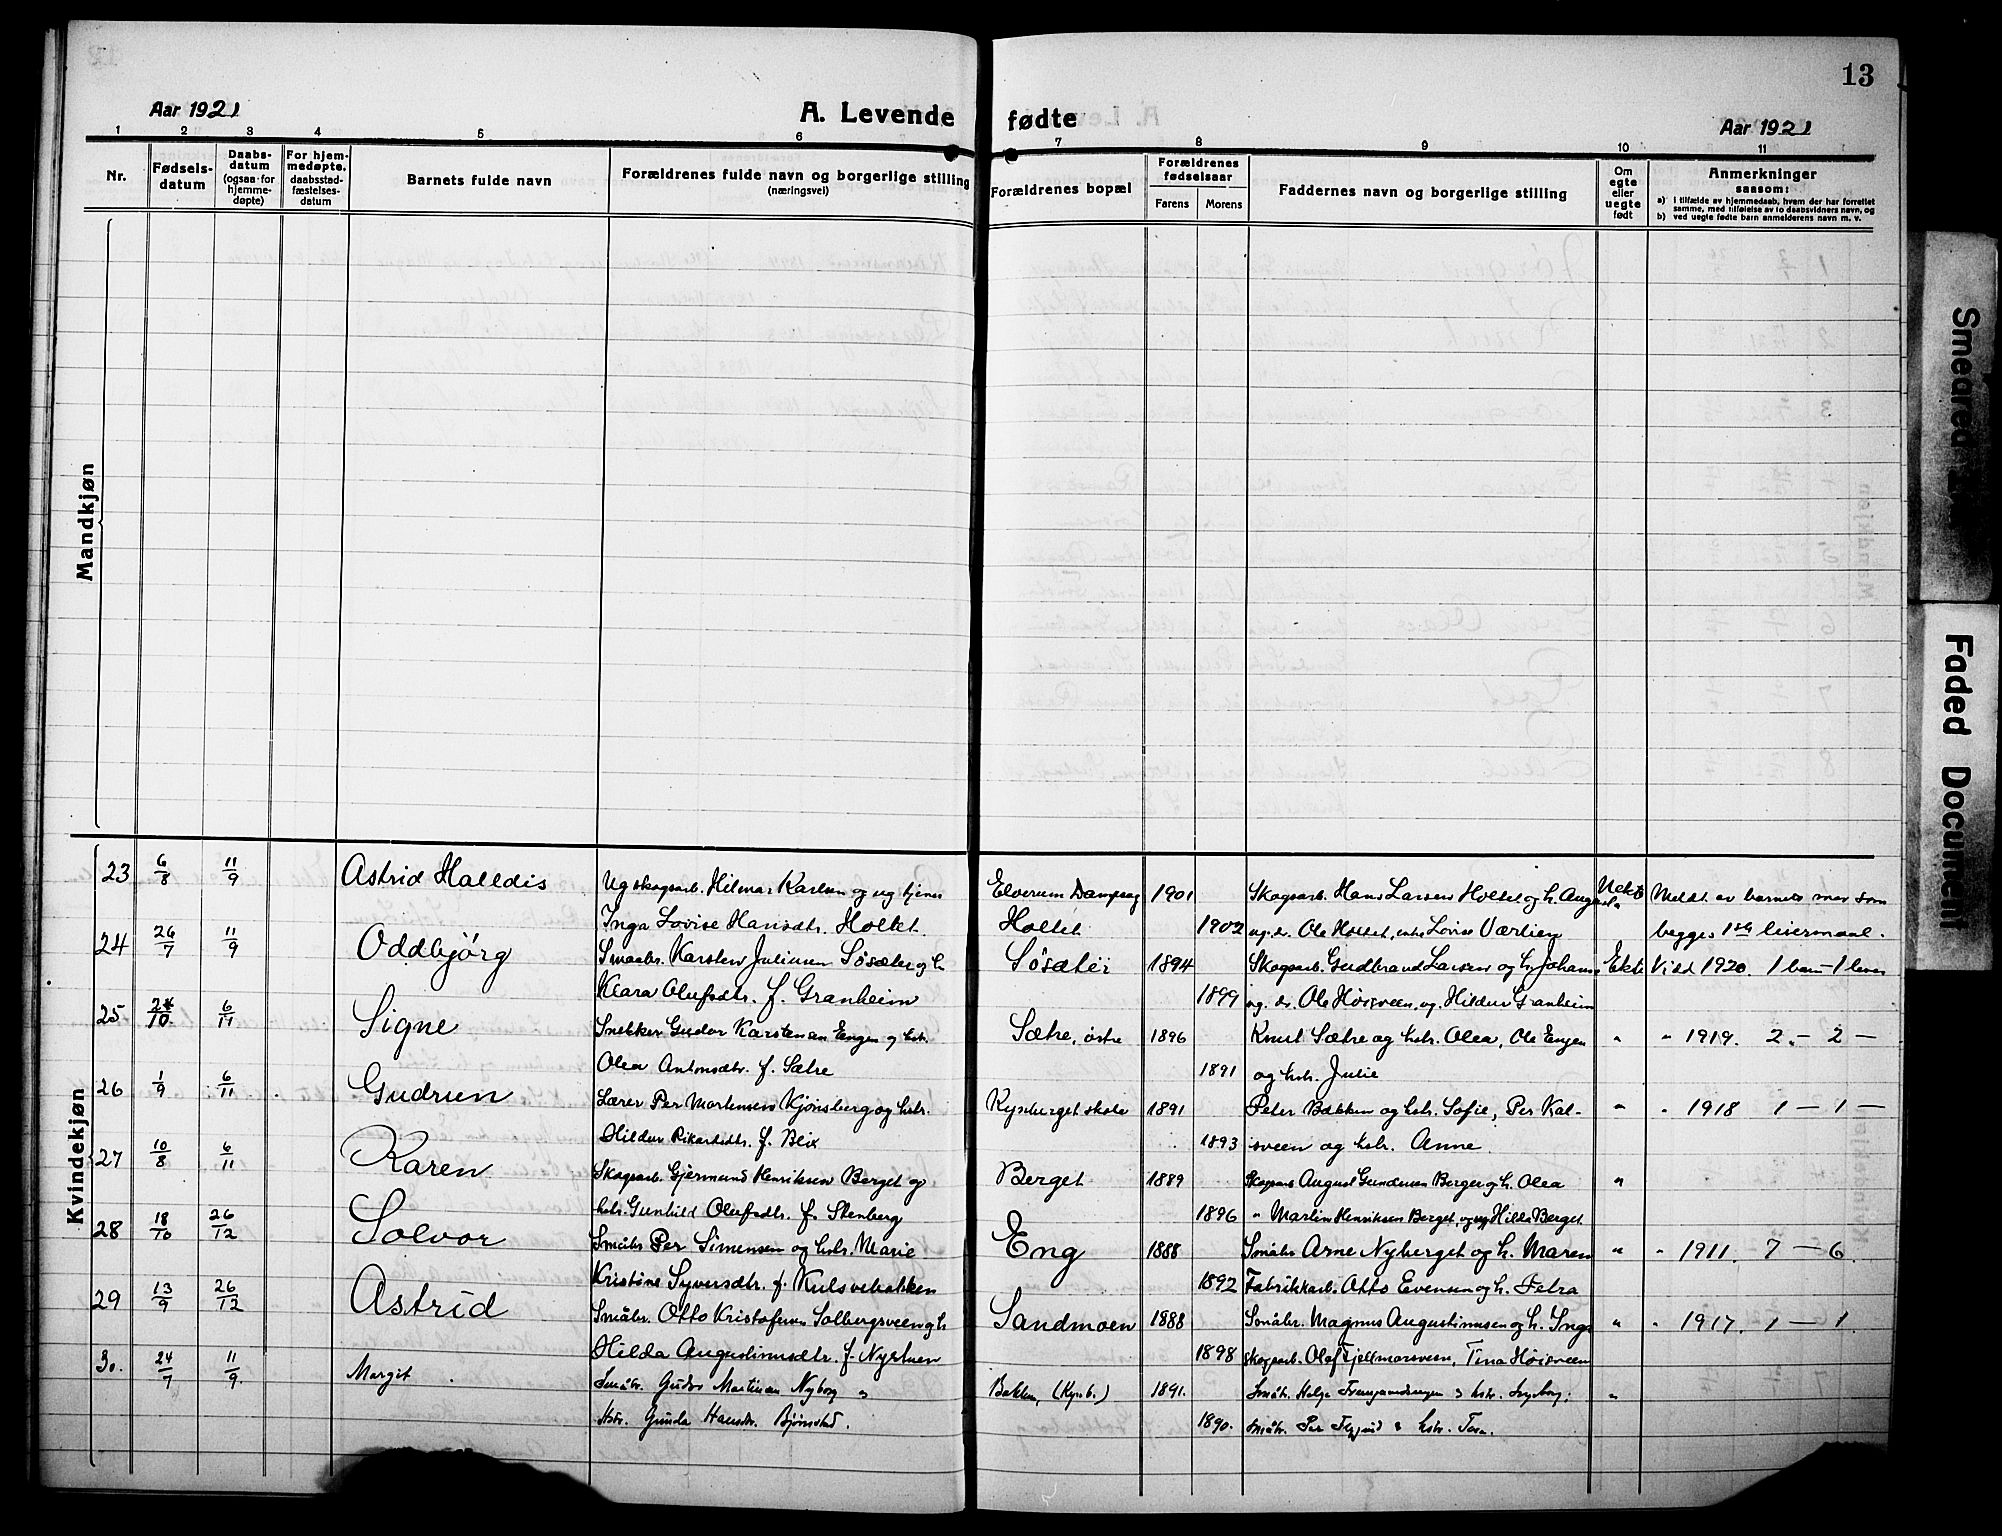 13
Aar 1921
A. Levende fødte
Aar 1921
1 2 3 4 5 6 7 8 9 10 11
Nr.
Fødselsdatum
Daabsdatum (ogsaa for hjemmedøpte)
For hjemmedøpte. daabsstadfæstelsesdatum
Barnets fulde navn
Forældrenes fulde navn og borgerlige stilling (næringsvei)
Forældrenes bopæl
Forældrenes fødselsaar
Farens Morens
Faddernes navn og borgerlige stilling
Om egte eller uegte født
Anmerkninger saasom:
a) i tilfælde av hjemmedaab, hvem der har forrettet samme, med tilføielse av to daabsvidners navn, og
b) ved uegte fødte barn anmelderens navn m. v.
Mandkjøn
Kvindekjøn
23 6/8 11/9 Astrid Halldis Ug skogsarb. Hilmar Karlsen og ug tjener Elverum Dampsag 1901 Skogsarb. Hans Larsen Holtet og h. Uekte Meldt av barnets mor som
Inga Lovise Hansdtr. Holtet Holtet 1902 ug. dr. Ole Holtet, Lovise begges 1ste leiermaal.
24 26/7 11/9 Oddbjørg Smaabr. Karsten Juliussen Søsæter og h. Søsæter 1894 Skogsarb. Gudbrand Larsen og h. Johanne Ekte Vild 1920. 1 barn – 1 lever
Klara Olufsdtr. f. Granheim 1899 ug. dr. Ole Høisveen, ug. Hildur Granheim
25 24/10 6/11 Signe Snekker Gudor Karstensen Engen og hstr. Sætre, østre 1896 Knut Sætre og hstr. Olea, Ole Engen " " 1919. 2 – 2 –
Olea Antonsdtr. f. Sætre 1891 og hstr. Julie
26 1/9 6/11 Gudrun Lærer Per Martinsen Kjønsberg og hstr. Kynberget skole 1891 Peter Bækken og hstr. Sofie, Per Kal- " " 1918 1 – 1 –
Hildur Rikardsdtr. f. Blix 1893 sveen og hstr. Anne.
27 10/8 6/11 Karen Skogsarb. Gjermund Henriksen Berget og Berget 1889 Skogsarb August Gundersen Berget og h. Olea "
hstr. Gunhild Olufsdtr. f. Stenberg 1896 " Martin Henriksen Berget, og ug Hilda Berget
28 18/10 26/12 Solvor Småbr Per Simensen og hstr. Marie Eng 1888 Småbr Arne Nyberget og h. Maren " " 1911. 7 – 6
Kristine Syversdtr. f. Kulsvebakken 1892 Fabrikkarb. Otto Evensen og h. Petra
29 13/9 26/12 Astrid Småbr. Otto Kristofersen Solbergsveen og h Sandmoen 1888 Småbr. Magnus Augustinussen og h. Inga " " 1917. 1 – 1.
Hilda Augustinusdtr. f. Nystuen 1898 Skogsarb. Olaf Fjellmorsveen, Tina Høisveen
30. 24/7 11/9. Margit Småbr. Gudor Martinsen Nyborg og Bakken, (Kynb.) 1891. Småbr. Helge og hstr. Ingeborg; "
Hstr. Gunda Hansdtr. Bjørnstad. 1890. Småbr. Per & hstr. Tora.
Smeared
Faded Document